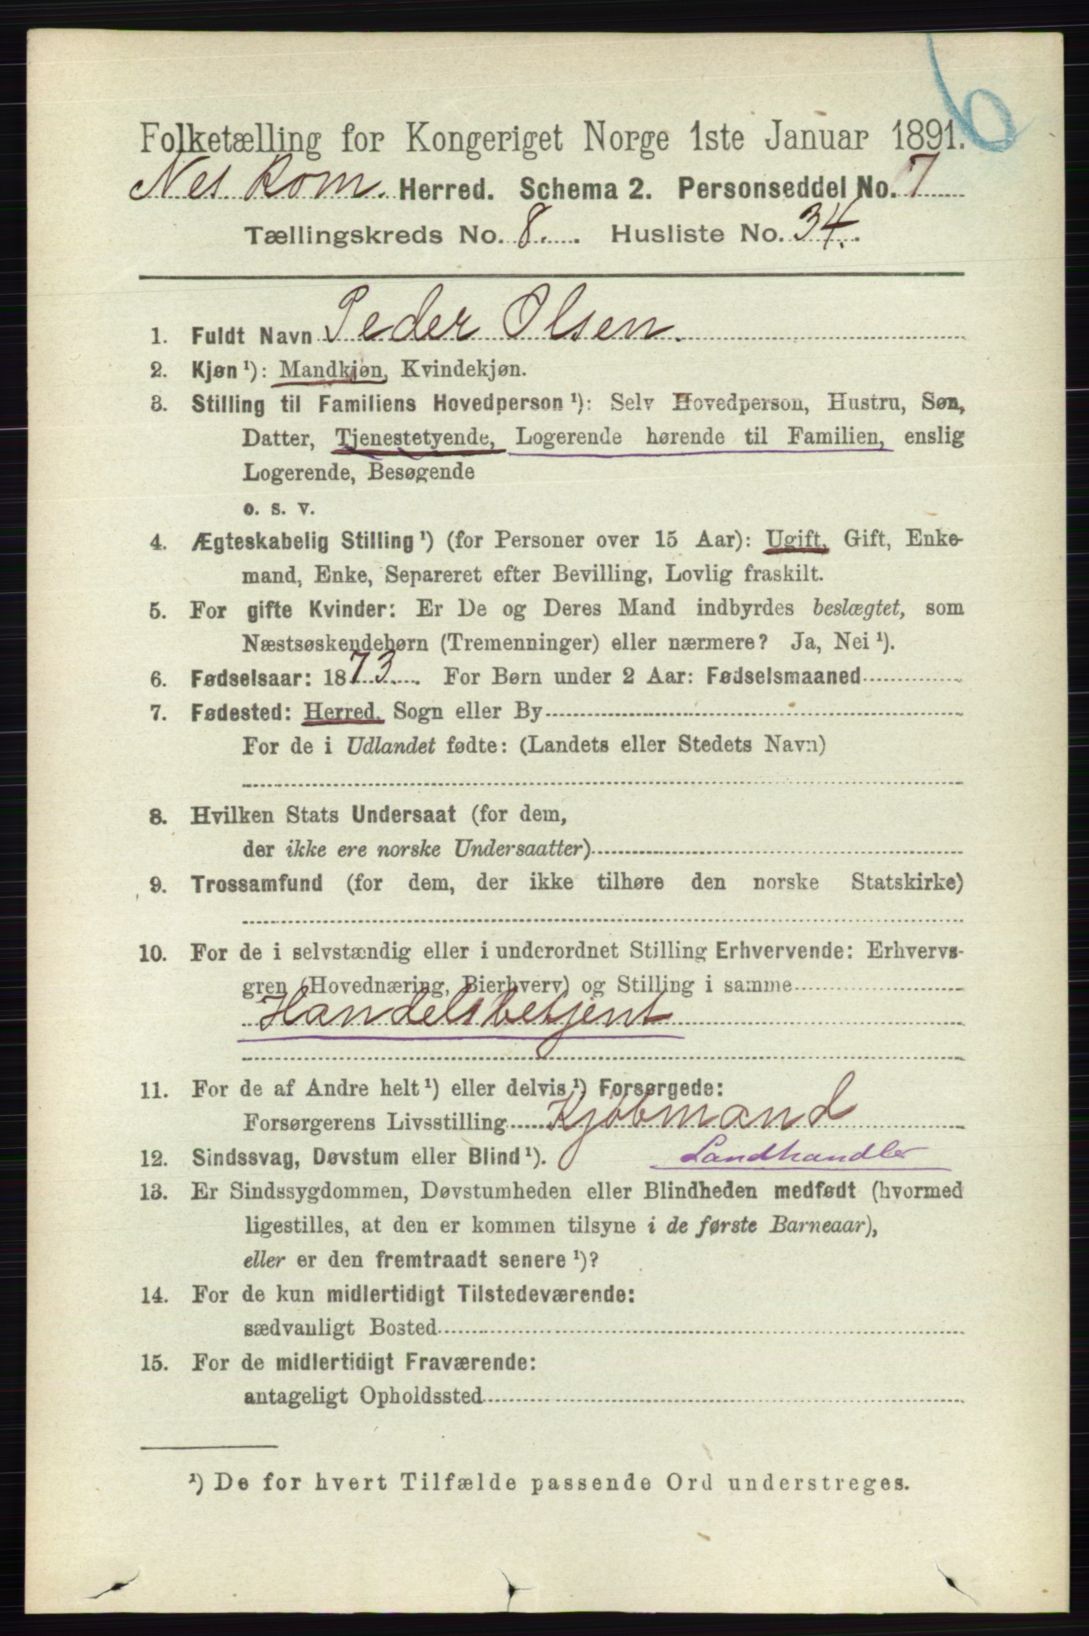 6
Folketælling for Kongeriget Norge 1ste Januar 1891.
Nes kom. Herred. Schema 2. Personseddel No. 7
Tællingskreds No. 8. Husliste No. 34.
1. Fuldt Navn Peder Olsen.
2. Kjøn ¹): Mandkjøn, Kvindekjøn.
3. Stilling til Familiens Hovedperson ¹): Selv Hovedperson, Hustru, Søn,
Datter, Tjenestetyende, Logerende hørende til Familien, enslig
Logerende, Besøgende
o. s. v.
4. Ægteskabelig Stilling ¹) (for Personer over 15 Aar): Ugift, Gift, Enke-
mand, Enke, Separeret efter Bevilling, Lovlig fraskilt.
5. For gifte Kvinder: Er De og Deres Mand indbyrdes beslægtet, som
Næstsøskendebørn (Tremenninger) eller nærmere? Ja, Nei ¹).
6. Fødselsaar: 1873. For Børn under 2 Aar: Fødselsmaaned
7. Fødested: Herred, Sogn eller By
For de i Udlandet fødte: (Landets eller Stedets Navn)
8. Hvilken Stats Undersaat (for dem,
der ikke ere norske Undersaatter)
9. Trossamfund (for dem, der ikke tilhøre den norske Statskirke)
10. For de i selvstændig eller i underordnet Stilling Erhvervende: Erhvervs-
gren (Hovednæring, Bierhverv) og Stilling i samme
Handelsbetjent
11. For de af Andre helt ¹) eller delvis ¹) Forsørgede:
Forsørgerens Livsstilling Kjøbmand
12. Sindssvag, Døvstum eller Blind ¹). Landhandler
13. Er Sindssygdommen, Døvstumheden eller Blindheden medfødt (hvormed
ligestilles, at den er kommen tilsyne i de første Barneaar),
eller er den fremtraadt senere ¹)?
14. For de kun midlertidigt Tilstedeværende:
sædvanligt Bosted
15. For de midlertidigt Fraværende:
antageligt Opholdssted
¹) De for hvert Tilfælde passende Ord understreges.